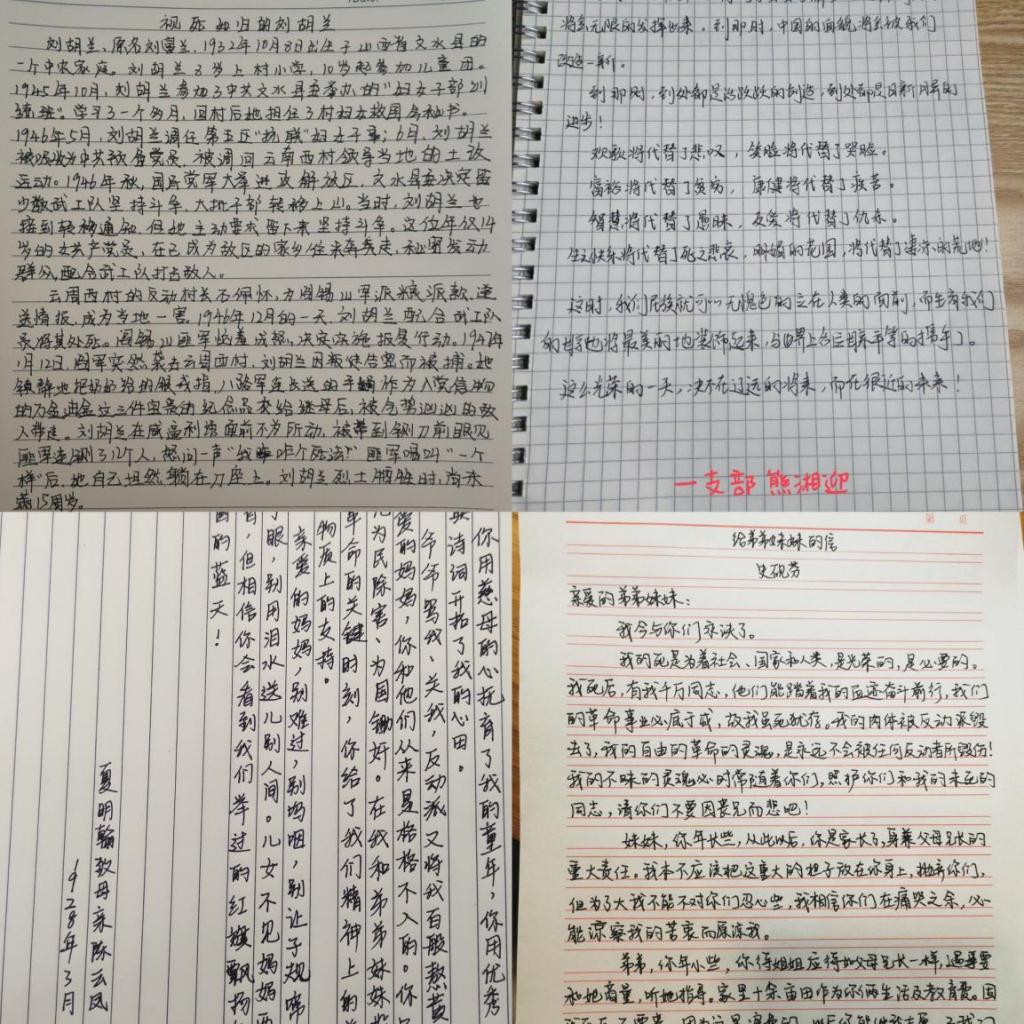 视死如归的刘胡兰
刘胡兰,原名刘富兰,1932年10月8日出生于山西省文水县的
一个中农家庭。刘胡兰8岁上村小学,10岁起参加儿童团。
1945年10月,刘胡兰参加了中共文水县委举办的"妇女干部训
练班"学习了一个多月,回村后她担任了村妇女救国会秘书。
1946年5月,刘胡兰调任第五区"抗联"妇女干事;6月,刘胡兰
被吸收为中共预备党员,被调回云周西村领导当地的土改
运动。1946年秋,国民党军大举进攻解放区,文水县委决定留
少数武工队坚持斗争,大批干部转移上山。当时,刘胡兰也
接到转移通知,但她主动要求留下来坚持斗争。这位年仅14
岁的女共产党员,在已成为敌区的家乡往来奔走,秘密发动
群众,配合武工队打击敌人。
云周西村的反动村长石佩怀,为阎锡山军派粮派款、递
送情报,成为当地一害。1946年12月的一天,刘胡兰配合武工队
员将其处死。阎锡山匪军恼羞成怒,决定实施报复行动。1947年
1月12日,阎军突然袭击云周西村,刘胡兰因叛徒告密而被捕。她
镇静地把奶奶给的银戒指、八路军连长送的手绢作为入党信物
的万金油盒这三件宝贵的纪念品交给继母后,被气势汹汹的敌
人带走。刘胡兰在威逼利诱面前不为所动,被带到铡刀前眼见
匪军连铡了几个人,怒问一声"我咋个死法?"匪军喝叫"一个
样"后,她自己坦然躺在刀座上。刘胡兰烈士牺牲时,尚未
满15周岁。
将会无限的发挥出来,到那时,中国的面貌将会被我们
改造一新。
到那时,到处都是活跃跃的创造,到处都是日新月异的
进步!
欢歌将代替了悲叹,笑脸将代替了哭脸。
富裕将代替了贫穷,康健将代替了疾苦。
智慧将代替了愚昧,友爱将代替了仇杀。
生之快乐将代替了死之悲哀,明媚的花园,将代替了凄凉的荒地!
这时,我们民族就可以无愧色的立在人类的面前,而生育我们
的母亲也将最美的地装饰起来,与世界上各位母亲平等的携手了。
这么光荣的一天,决不在辽远的将来,而在很近的未来!
一支部 熊湘迎
你用慈母的心抚育了我的童年,你用优秀
诗词开拓了我的心田。
爷爷骂我、关我,反动派又将我百般熬煎
爱的妈妈,你和他们从来是格格不入的。你
儿为民除害、为国锄奸。在我和弟弟妹妹
革命的关键时刻,你给了我们精神上的
物质上的支持。
亲爱的妈妈,别难过,别呜咽,别让子规啼
眼,别用泪水送儿别人间。儿女不见妈妈
,但相信你会看到我们举过的红旗飘扬
的蓝天!
夏明翰致母亲陈云凤
1928年3月
第 页
给弟弟妹妹的信
史砚芬
亲爱的弟弟妹妹:
我今与你们永诀了。
我的死是为着社会、国家和人类,是光荣的,是必要的。
我死后,有我千万同志,他们能踏着我的血迹奋斗前行,我们
的革命事业必底于成,故我虽死犹存。我的肉体被反动派毁
去了,我的自由的革命的灵魂,是永远不会被任何反动者所毁伤!
我的不昧的灵魂必时常随着你们,照护你们和我的未死的
同志,请你们不要因丧兄而悲吧!
妹妹,你年长些,从此以后,你是家长了,身兼父母兄长的
重大责任。我本不应该把这重大的担子放在你身上,抛弃你们,
但为了大我不能不对你们忍心些,我相信你们在痛哭之余,必
能谅察我的苦衷而原谅我。
弟弟,你年小些,你待姐姐应得如父母兄长一样,遇事要
和她商量,听她指导。家里十余亩田作为你俩生活及教育费。